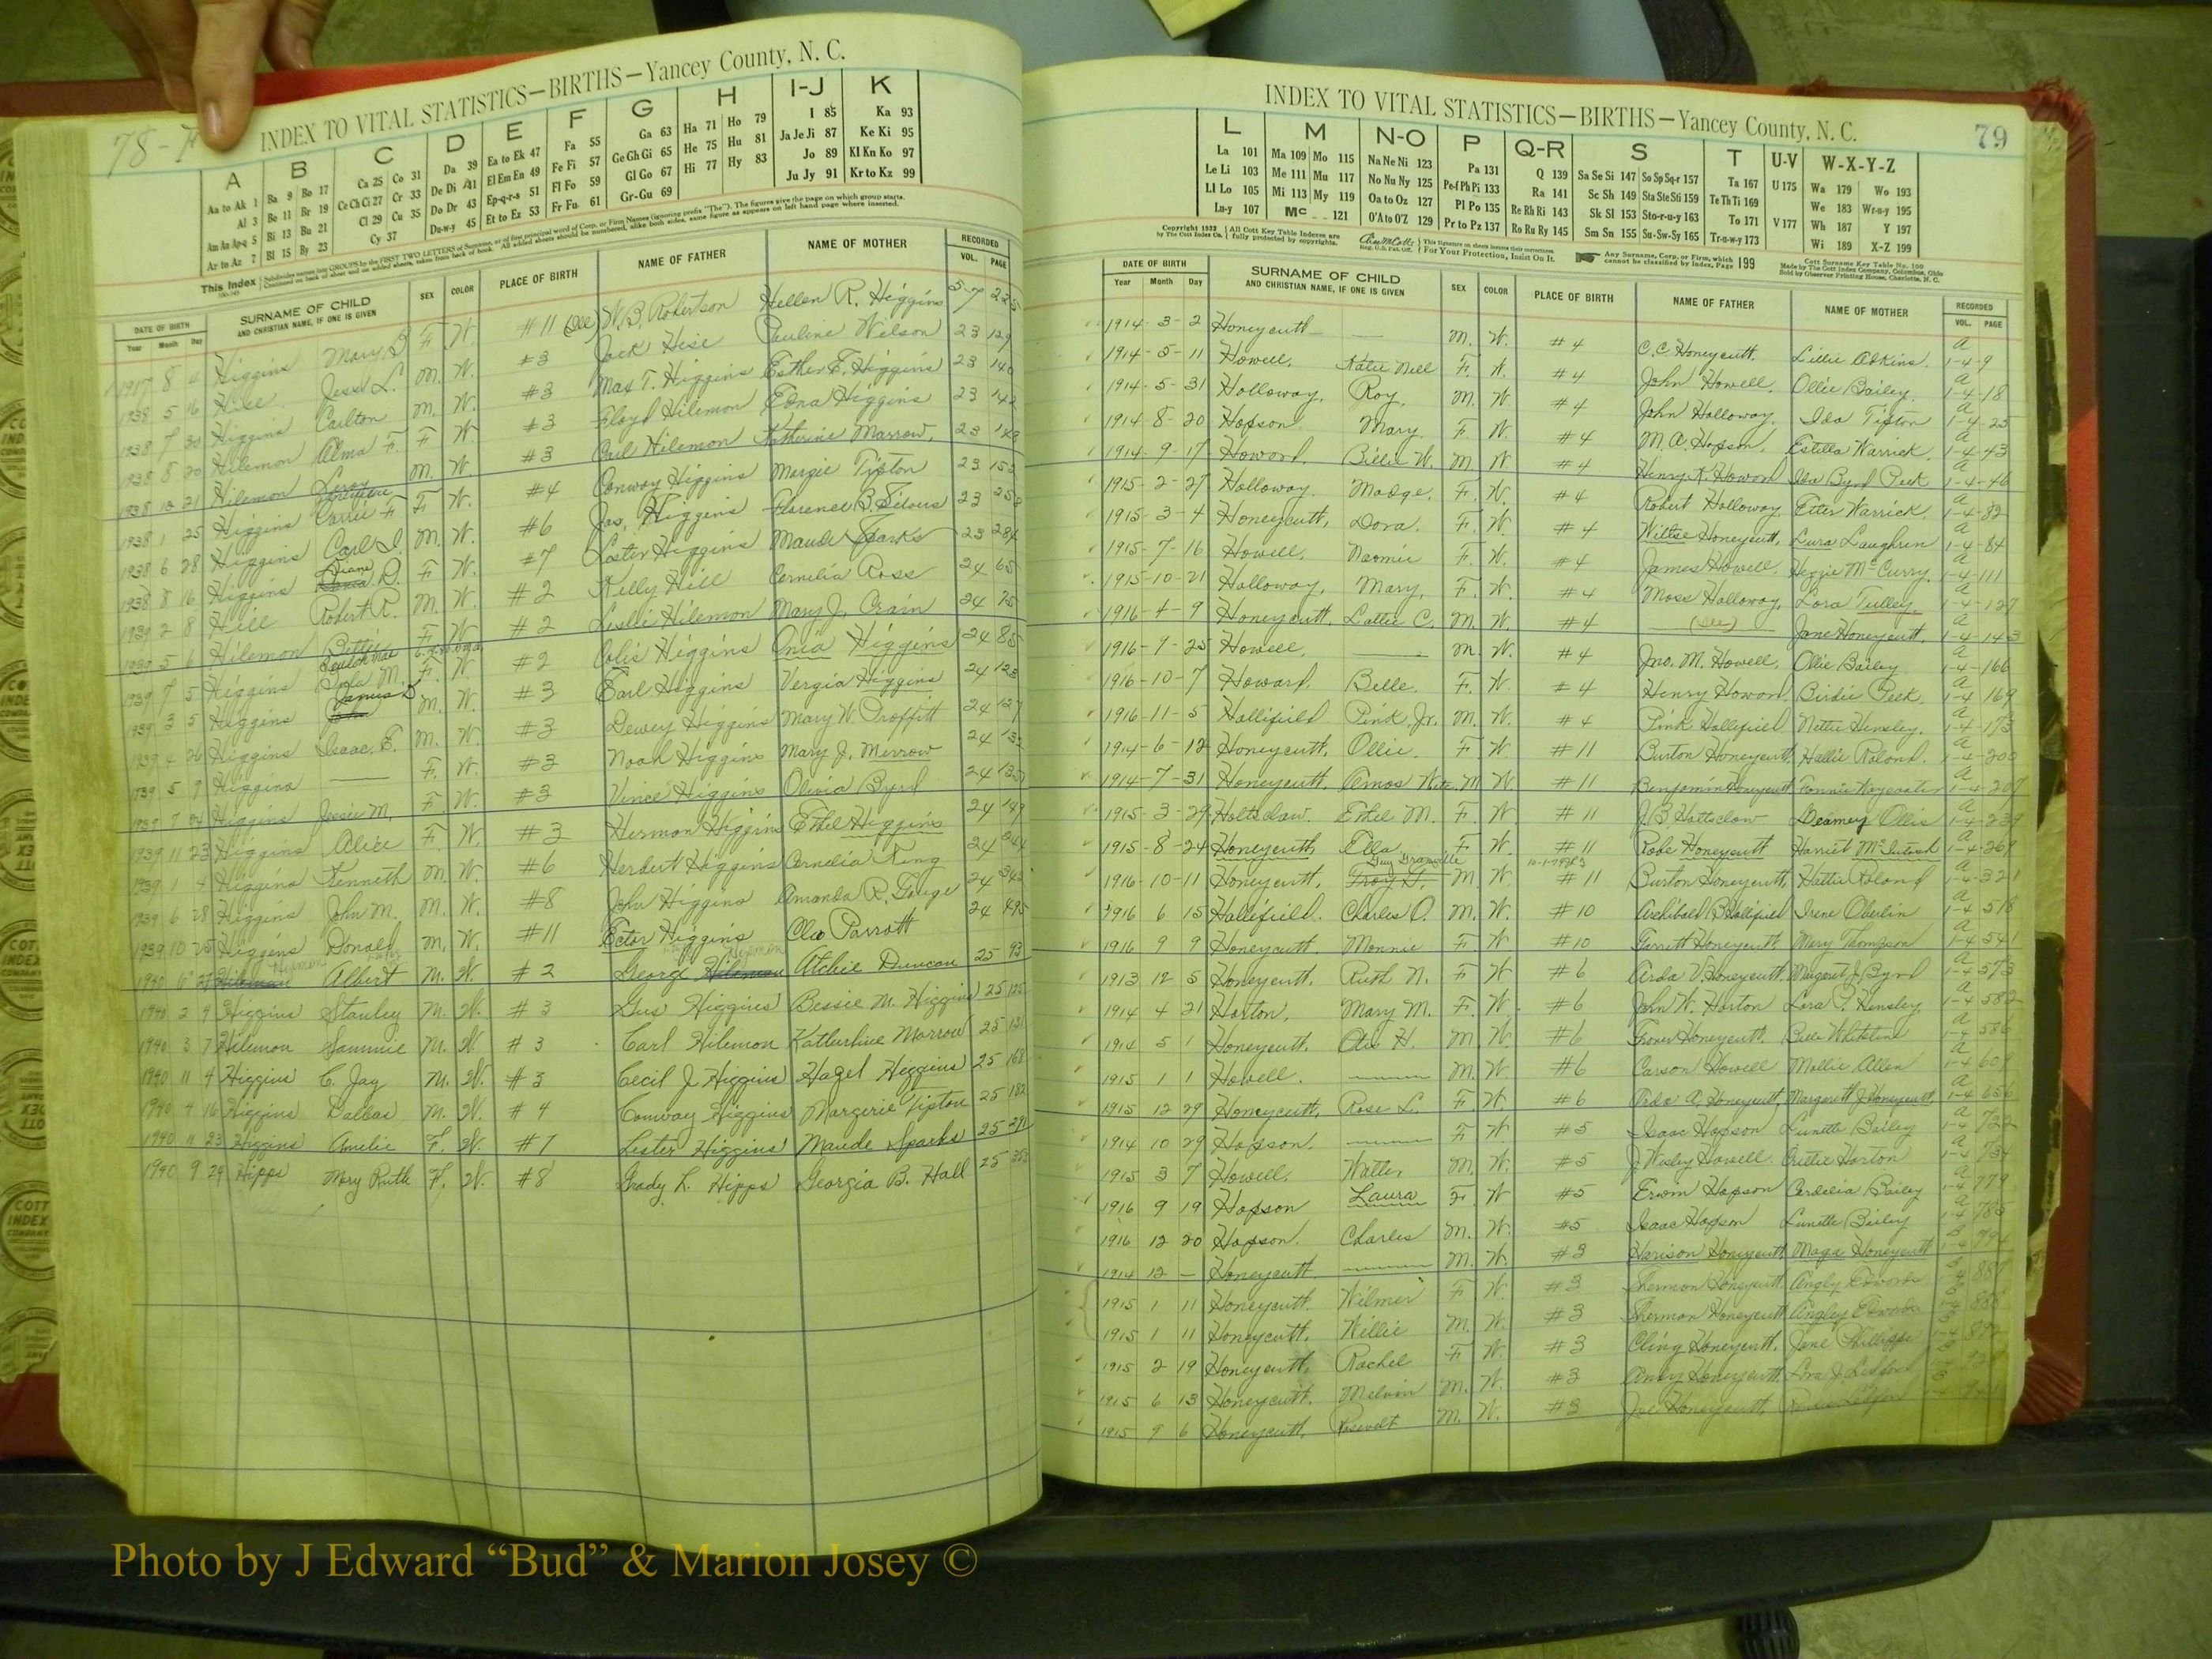 78-
INDEX TO VITAL STATISTICS—BIRTHS—Yancey County, N. C.
A B C D E F G H I-J K
Aa to Ak 1 Ba 9 Bo 17 Ca 25 Co 31 Da 39 Ea to Ek 47 Fa 55 Ga 63 Ha 71 Ho 79 I 85 Ka 93
Al 3 Be 11 Br 19 Ce Ch Ci 27 Cr 33 De Di 41 El Em En 49 Fe Fi 57 Ge Gh Gi 65 He 75 Hu 81 Ja Je Ji 87 Ke Ki 95
Am An Ap-q 5 Bi 13 Bu 21 Cl 29 Cu 35 Do Dr 43 Ep-q-r-s 51 Fl Fo 59 Gl Go 67 Hi 77 Hy 83 Jo 89 Kl Kn Ko 97
Ar to Az 7 Bl 15 By 23 Cy 37 Du-w-y 45 Et to Ez 53 Fr Fu 61 Gr-Gu 69 Ju Jy 91 Kr to Kz 99
This Index
DATE OF BIRTH SURNAME OF CHILD SEX COLOR PLACE OF BIRTH NAME OF FATHER NAME OF MOTHER RECORDED
Year Month Day AND CHRISTIAN NAME, IF ONE IS GIVEN VOL. PAGE
1917 8 Higgins Mary B F W. #11 W. B. Robertson Hellen R. Higgins
1938 5 16 Hise Jess L. M. W. #3 Jack Hise Pauline Wilson 23 129
1938 7 30 Higgins Carlton M. W. #3 Max T. Higgins Esther E. Higgins 23 140
1938 8 20 Hilemon Alma F. F W. #3 Floyd Hilemon Edna Higgins 23 142
1938 12 21 Hilemon Leroy M. W. #3 Carl Hilemon Katherine Marrow 23
1938 1 25 Higgins Carrie F F W. #4 Conway Higgins Margie Tipton 23
1938 6 28 Higgins Carl D. M. W. #6 Jas. Higgins Florence B. Silvers 23
1938 8 16 Higgins Diane D. F W. #7 Lester Higgins Maude Sparks 23 284
1939 2 8 Hill Robert R. M. W. #2 Kelly Hill Cornelia Ross 24 65
1939 5 6 Hilemon Bettie F. W. #2 Leslie Hilemon Mary J. Crain 24 75
1939 7 5 Higgins M. F. W. #2 Colis Higgins Onia Higgins 24 85
1939 3 5 Higgins James D M. W. #3 Earl Higgins Vergia Higgins 24 123
1939 4 26 Higgins Isaac E. M. W. #3 Dewey Higgins Mary W. Proffitt 24 127
1939 5 9 Higgins —— F. W. #3 Noah Higgins Mary J. Merrow 24
1939 7 24 Higgins Jessie M. F W. #3 Vince Higgins Olivia Byrd 24
1939 11 23 Higgins Alice F. W. #3 Hermon Higgins Ethel Higgins 24 149
1939 1 4 Higgins Kenneth M. W. #6 Herbert Higgins Cornelia King 24
1939 6 28 Higgins John M. M. W. #8 John Higgins Amanda R. Gouge 24 343
1939 10 25 Higgins Donald M. W. #11 Ector Higgins Cleo Parrott 24 495
1940 27 Hileman Albert M. W. #2 George Hileman Atchie Duncan 25 93
1940 2 9 Higgins Stanley M. W. #3 Gus Higgins Bessie M. Higgins 25 125
1940 3 7 Hilemon Sammie M. W. #3 Carl Hilemon Katherine Marrow 25 131
1940 11 4 Higgins C. Jay M. W. #3 Cecil J Higgins Hazel Higgins 25 168
1940 4 16 Higgins Dallas M. W. #4 Conway Higgins Margerie Tipton 25 182
1940 11 23 Higgins Amelie F. W. #7 Lester Higgins Maude Sparks 25 291
1940 9 29 Hipps Mary Ruth F. W. #8 Grady L. Hipps Georgia B. Hall 25 353
INDEX TO VITAL STATISTICS—BIRTHS—Yancey County, N. C.
79
L M N-O P Q-R S T U-V W-X-Y-Z
La 101 Ma 109 Mo 115 Na Ne Ni 123 Pa 131 Q 139 Sa Se Si 147 So Sp Sq-r 157 Ta 167 U 175 Wa 179 Wo 193
Le Li 103 Me 111 Mu 117 No Nu Ny 125 Pe-f Ph Pi 133 Ra 141 Sc Sh 149 Sta Ste Sti 159 Te Th Ti 169 We 183 Wr-u-y 195
Ll Lo 105 Mi 113 My 119 Oa to Oz 127 Pl Po 135 Re Rh Ri 143 Sk Sl 153 Sto-r-u-y 163 To 171 V 177 Wh 187 Y 197
Lu-y 107 Mc 121 O'A to O'Z 129 Pr to Pz 137 Ro Ru Ry 145 Sm Sn 155 Su-Sw-Sy 165 Tr-u-w-y 173 Wi 189 X-Z 199
Copyright 1932 by The Cott Index Co. All Cott Key Table Indexes are fully protected by copyrights. For Your Protection, Insist On It. Any Surname, Corp. or Firm, which cannot be classified by Index, Page 199
Cott Surname Key Table No. 100
Made by The Cott Index Company, Columbus, Ohio
Sold by Observer Printing House, Charlotte, N. C.
DATE OF BIRTH SURNAME OF CHILD SEX COLOR PLACE OF BIRTH NAME OF FATHER NAME OF MOTHER RECORDED
Year Month Day AND CHRISTIAN NAME, IF ONE IS GIVEN VOL. PAGE
1914-3-2 Honeycutt —— M. W. #4 C. C. Honeycutt. Lillie Adkins. A 1-4-9
1914-5-11 Howell, Katie Nell F. W. #4 John Howell, Ollie Bailey A 1-4-18
1914-5-31 Holloway, Roy. M. W #4 John Holloway. Ida Tipton A 1-4-25
1914-8-20 Hopson Mary. F. W. #4 M. A. Hopson, Estella Warrick. A 1-4-43
1914-9-17 Howard, Billie W. M W. #4 Henry K. Howard Ida Byrd Peek A 1-4-46
1915-2-27 Holloway. Madge. F. W. #4 Robert Holloway Etter Warrick. A 1-4-82
1915-3-4 Honeycutt, Dora. F. W. #4 Wiltse Honeycutt, Lura Laughren A 1-4-84
1915-7-16 Howell, Naomie F. W. #4 James Howell. McCurry. A 1-4-111
1915-10-21 Holloway, Mary, F. W. #4 Moss Holloway, Lora Tulley. A 1-4-127
1916-4-9 Honeycutt. Lattie C. M. W. #4 (see) Jane Honeycutt. A 1-4-143
1916-9-25 Howell, —— M. W. #4 Jno. M. Howell, Ollie Bailey A 1-4-166
1916-10-7 Howard. Belle. F. W. #4 Henry Howard, Birdie Peek A 1-4-169
1916-11-5 Hallifield Pink, Jr. M. W. #4 Pink Hallifield Nettie Hensley. A 1-4-173
1914-6-12 Honeycutt, Ollie. F. W #11 Burton Honeycutt Hallie Roland. A 1-4-200
1914-7-31 Honeycutt. Amos M W. #11 Benjamin Honeycutt Fonnie A 1-4-207
1915-3-29 Holtsclaw. Ethel M. F. W. #11 J. B. Holtsclaw Ollis A 1-4-239
1915-8-24 Honeycutt, Ella F. W. #11 Robt Honeycutt Harriet McIntosh A 1-4-269
1916-10-11 Honeycutt, Guy Granville M. W. #11 Burton Honeycutt, Hattie Roland A 1-4-321
1916 6 15 Hallifield. Charles O. M. W. #10 Archibald B Hallifield Irene Oberlin A 1-4 518
1916 9 9 Honeycutt Monnie F. W #10 Garrett Honeycutt Mary Thompson A 1-4 541
1913 12 5 Honeycutt. Ruth N. F W #6 Arda V. Honeycutt Margaret J. Byrd A 1-4 573
1914 4 21 Horton, Mary M. F. W. #6 John W. Horton Lora P. Hensley. A 1-4 582
1914 5 1 Honeycutt. Otis H. M W. #6 Honeycutt. Belle Whitson A 1-4 586
1915 1 1 Howell. —— M. W. #6 Carson Howell Mollie Allen A 1-4 609
1915 12 29 Honeycutt, Rose L. F. W. #6 Arda A. Honeycutt, Margarett J Honeycutt A 1-4 656
1914 10 29 Hopson. —— F W #5 Isaac Hopson Lunette Bailey A 1-4 722
1915 3 7 Howell, Walter M. W. #5 J. Wesley Howell. Horton A 1-4 734
1916 9 19 Hopson Laura F. W #5 Erwin Hopson Cordelia Bailey A 1-4 779
1916 12 20 Hopson. Charles M. W. #5 Isaac Hopson Lunette Bailey A 1-4 785
1914 12 — Honeycutt —— M. W. #3 Harison Honeycutt, Honeycutt
1915 1 11 Honeycutt. Wilmer F W. #3 Shermon Honeycutt. 887
1915 1 11 Honeycutt, Willie M. W. #3 Shermon Honeycutt 888
1915 2 19 Honeycutt, Rachel F W. #3 Cling Honeycutt, Jane Phillips
1915 6 13 Honeycutt. Melvin M. W. #3 Honeycutt
1915 9 6 Honeycutt, Rosevelt M. W. #3 Joe Honeycutt,
Photo by J Edward “Bud” & Marion Josey ©